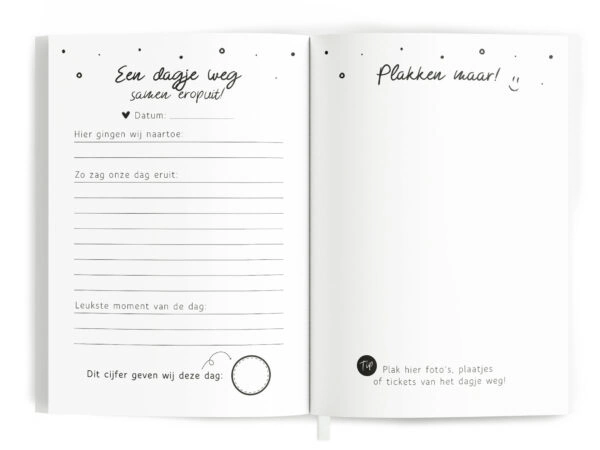 Een dagje weg
samen eropuit!
Datum:
Hier gingen wij naartoe:
Zo zag onze dag eruit:
Leukste moment van de dag:
Dit cijfer geven wij deze dag:
Plakken maar!
Tip
Plak hier foto's, plaatjes
of tickets van het dagje weg!